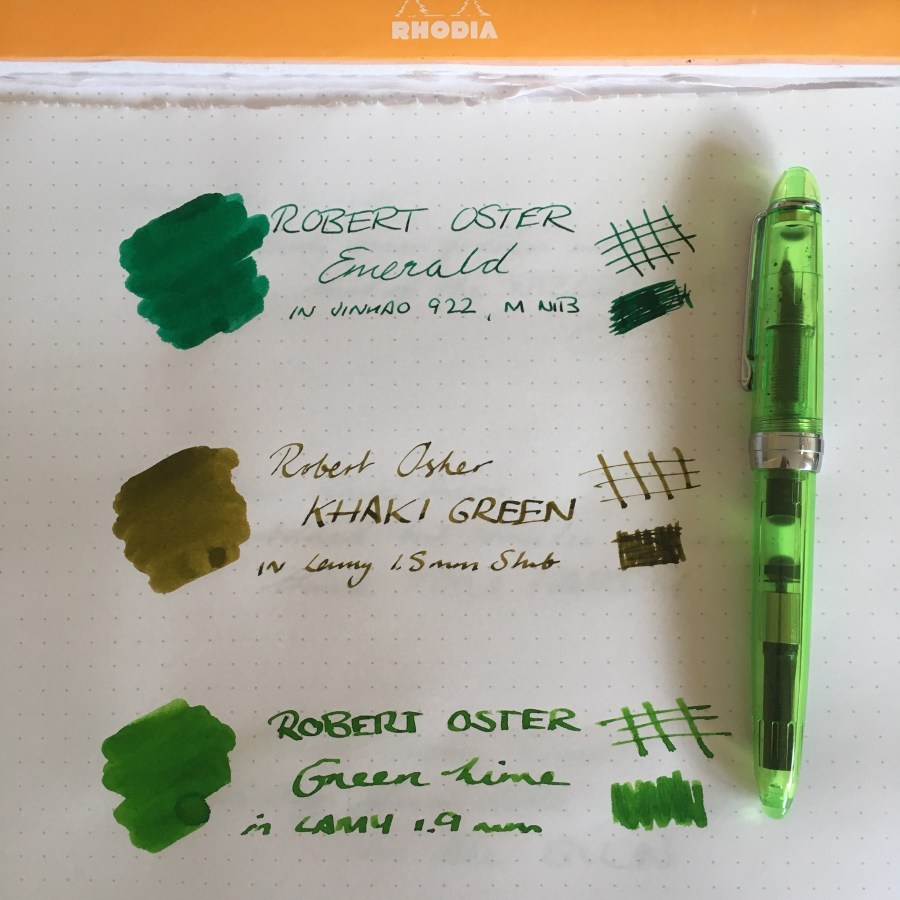 RHODIA
ROBERT OSTER
Emerald
IN JINHAO 922, M NIB
Robert Oster
KHAKI GREEN
IN Lamy 1.5 mm Stub
ROBERT OSTER
Green Lime
in LAMY 1.9 mm